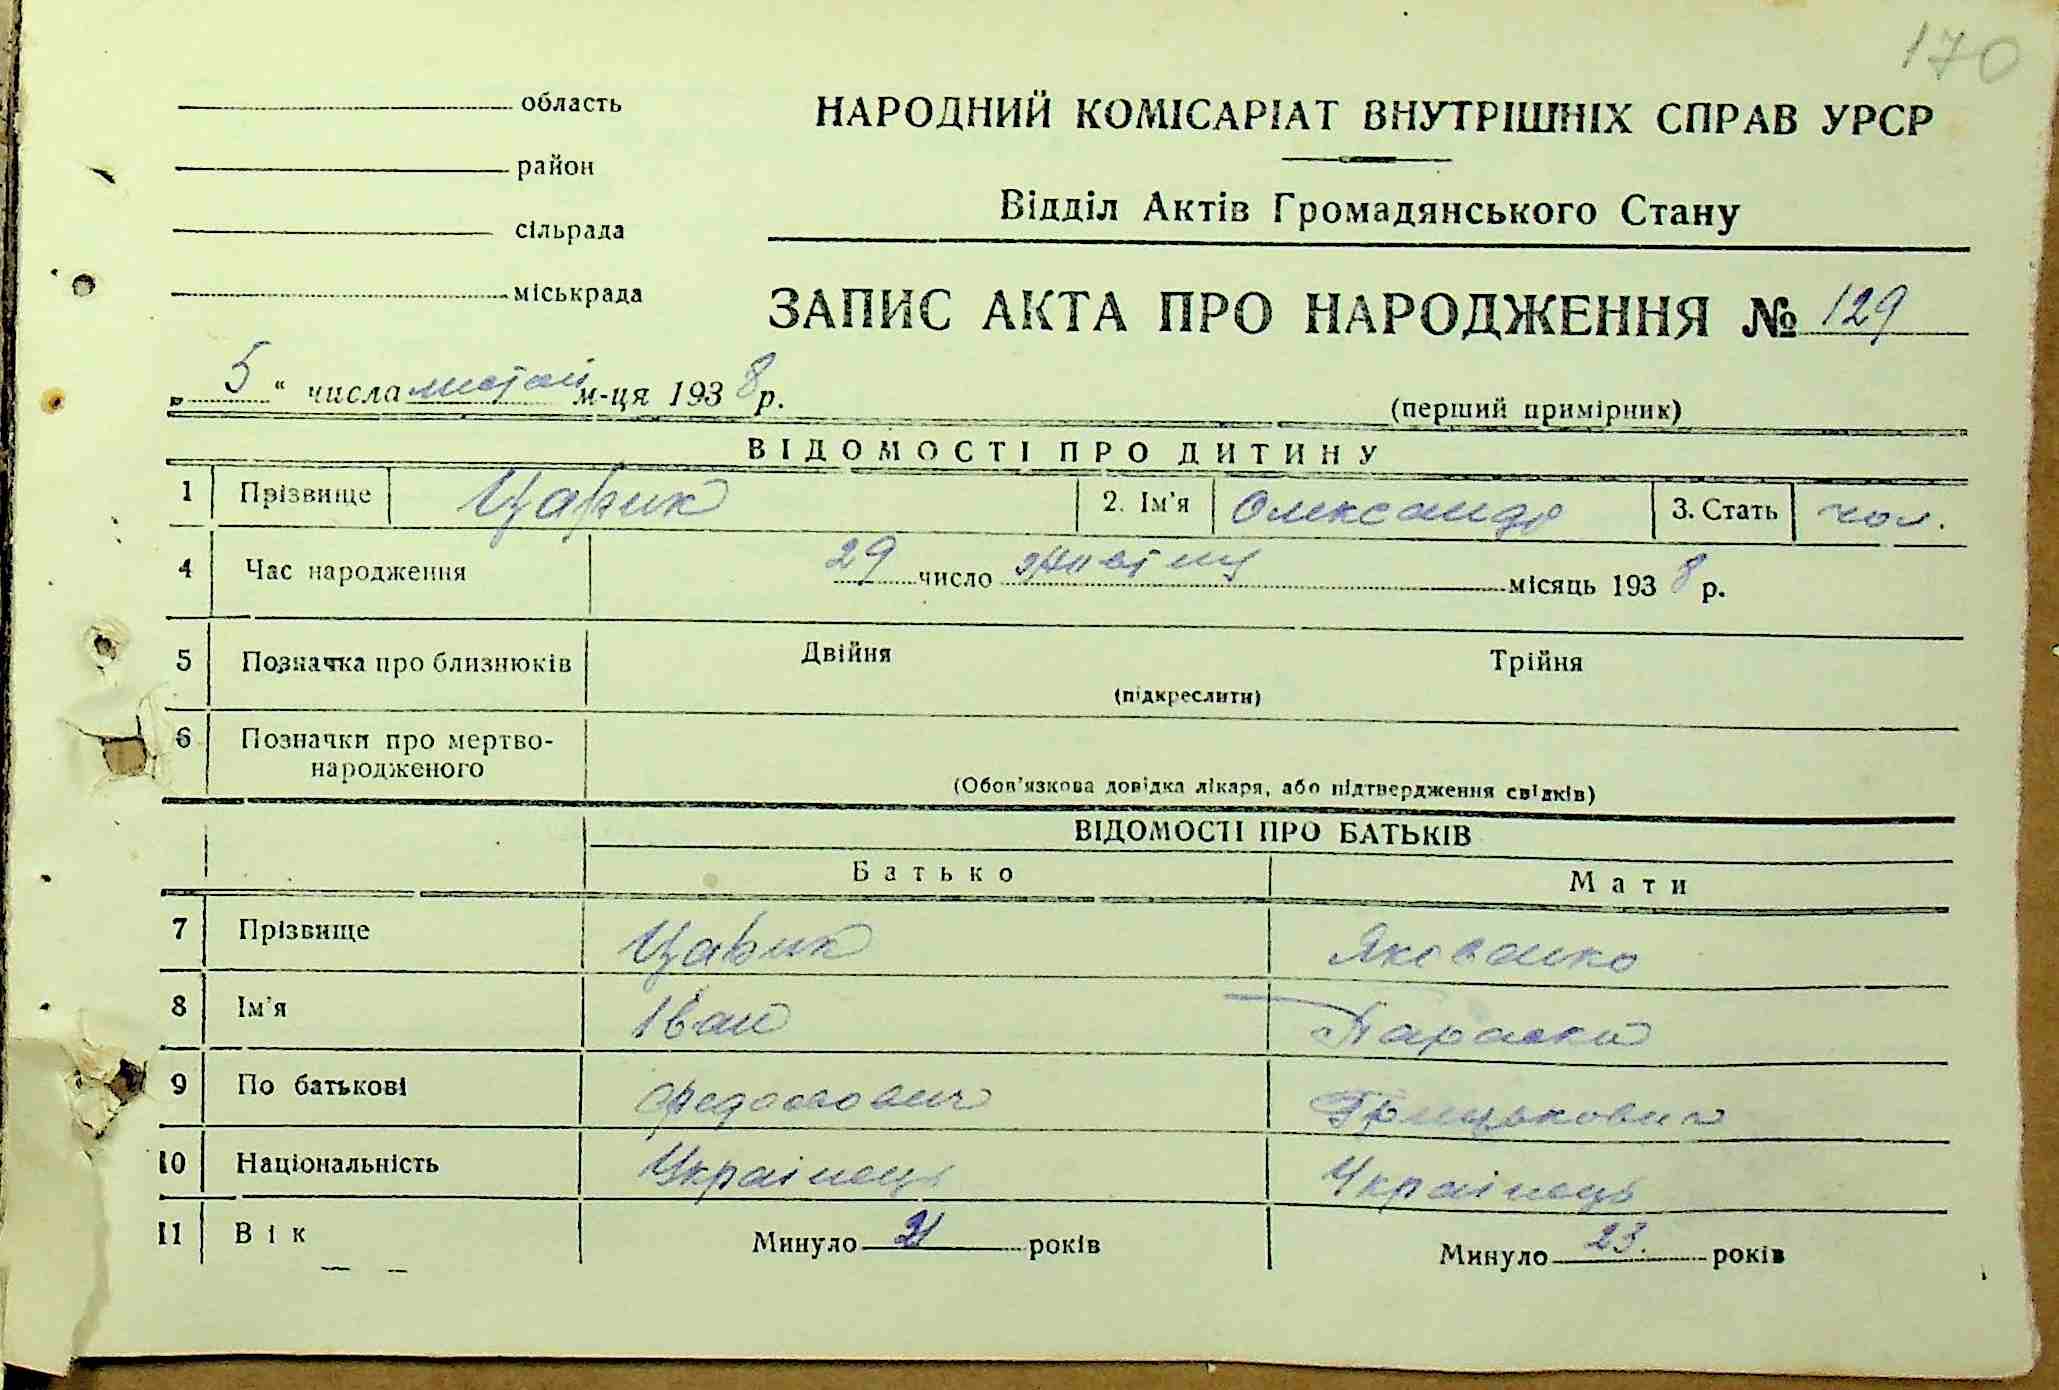 170
область
район
сільрада
міськрада
НАРОДНИЙ КОМІСАРІАТ ВНУТРІШНІХ СПРАВ УРСР
Відділ Актів Громадянського Стану
ЗАПИС АКТА ПРО НАРОДЖЕННЯ № 129
„ 5 “ числа листоп м-ця 1938 р.
(перший примірник)
ВІДОМОСТІ ПРО ДИТИНУ
1 Прізвище Царик 2. Ім'я Олександр 3. Стать чол.
4 Час народження 29 число жовтня місяць 1938 р.
5 Позначка про близнюків Двійня Трійня
(підкреслити)
6 Позначки про мертво-
народженого
(Обов'язкова довідка лікаря, або підтвердження свідків)
ВІДОМОСТІ ПРО БАТЬКІВ
Батько Мати
7 Прізвище Царик Яковенко
8 Ім'я Іван Параска
9 По батькові Федосович Грицькович
10 Національність Українець Українець
11 Вік Минуло 21 років Минуло 23. років